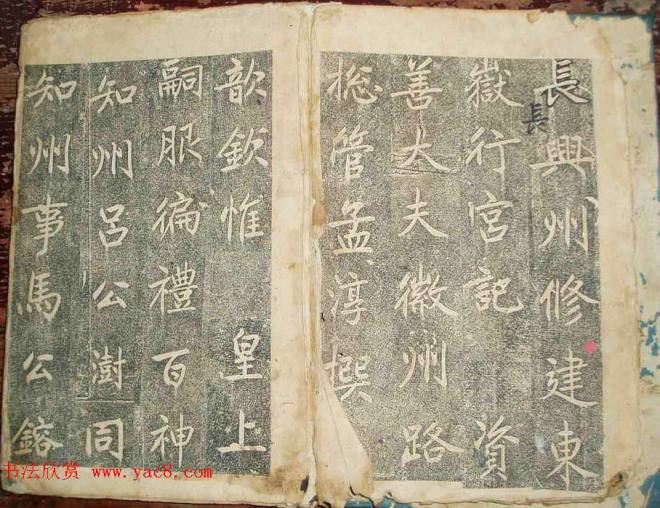 長興州修建東
嶽行宮記　資
善大夫徽州路
捴管孟淳撰
歆欽惟　皇上
嗣服徧禮百神
知州呂公澍同
知州事馬公鎔
長
书法欣赏 www.yac8.com